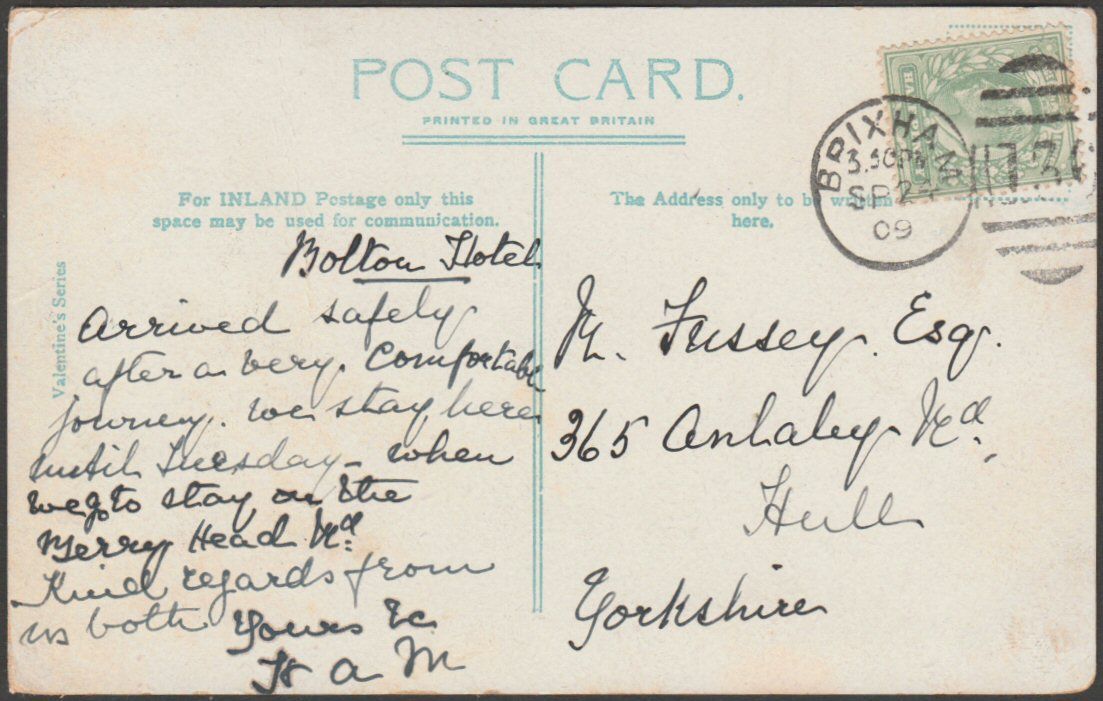 POST CARD.
PRINTED IN GREAT BRITAIN
For INLAND Postage only this
space may be used for communication.
The Address only to be written
here.
Valentine's Series
BRIXHAM
3.30PM
SP 2
09
Bolton Hotel
Arrived safely
after a very comfortable
journey. we stay here
until Tuesday - when
we go to stay on the
Berry Head Rd.
Kind regards from
us both Yours &c
H A M
M. Fussey. Esq.
365 Anlaby Rd.
Hull
Yorkshire